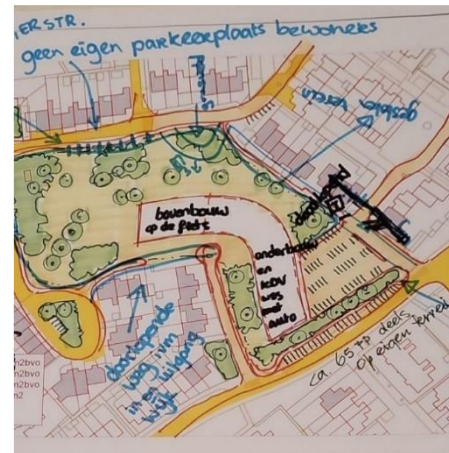 IERSTR.
geen eigen parkeerplaats bewoners
gesloten terrein
bovenbouw
op de fiets
onderbouw
en
KDV
weg
met
auto
doorlopende
weg ivm
in en uitgang
wijk
ca. 65 pp deels
op eigen terrein
m2bvo
m2bvo
m2bvo
m2